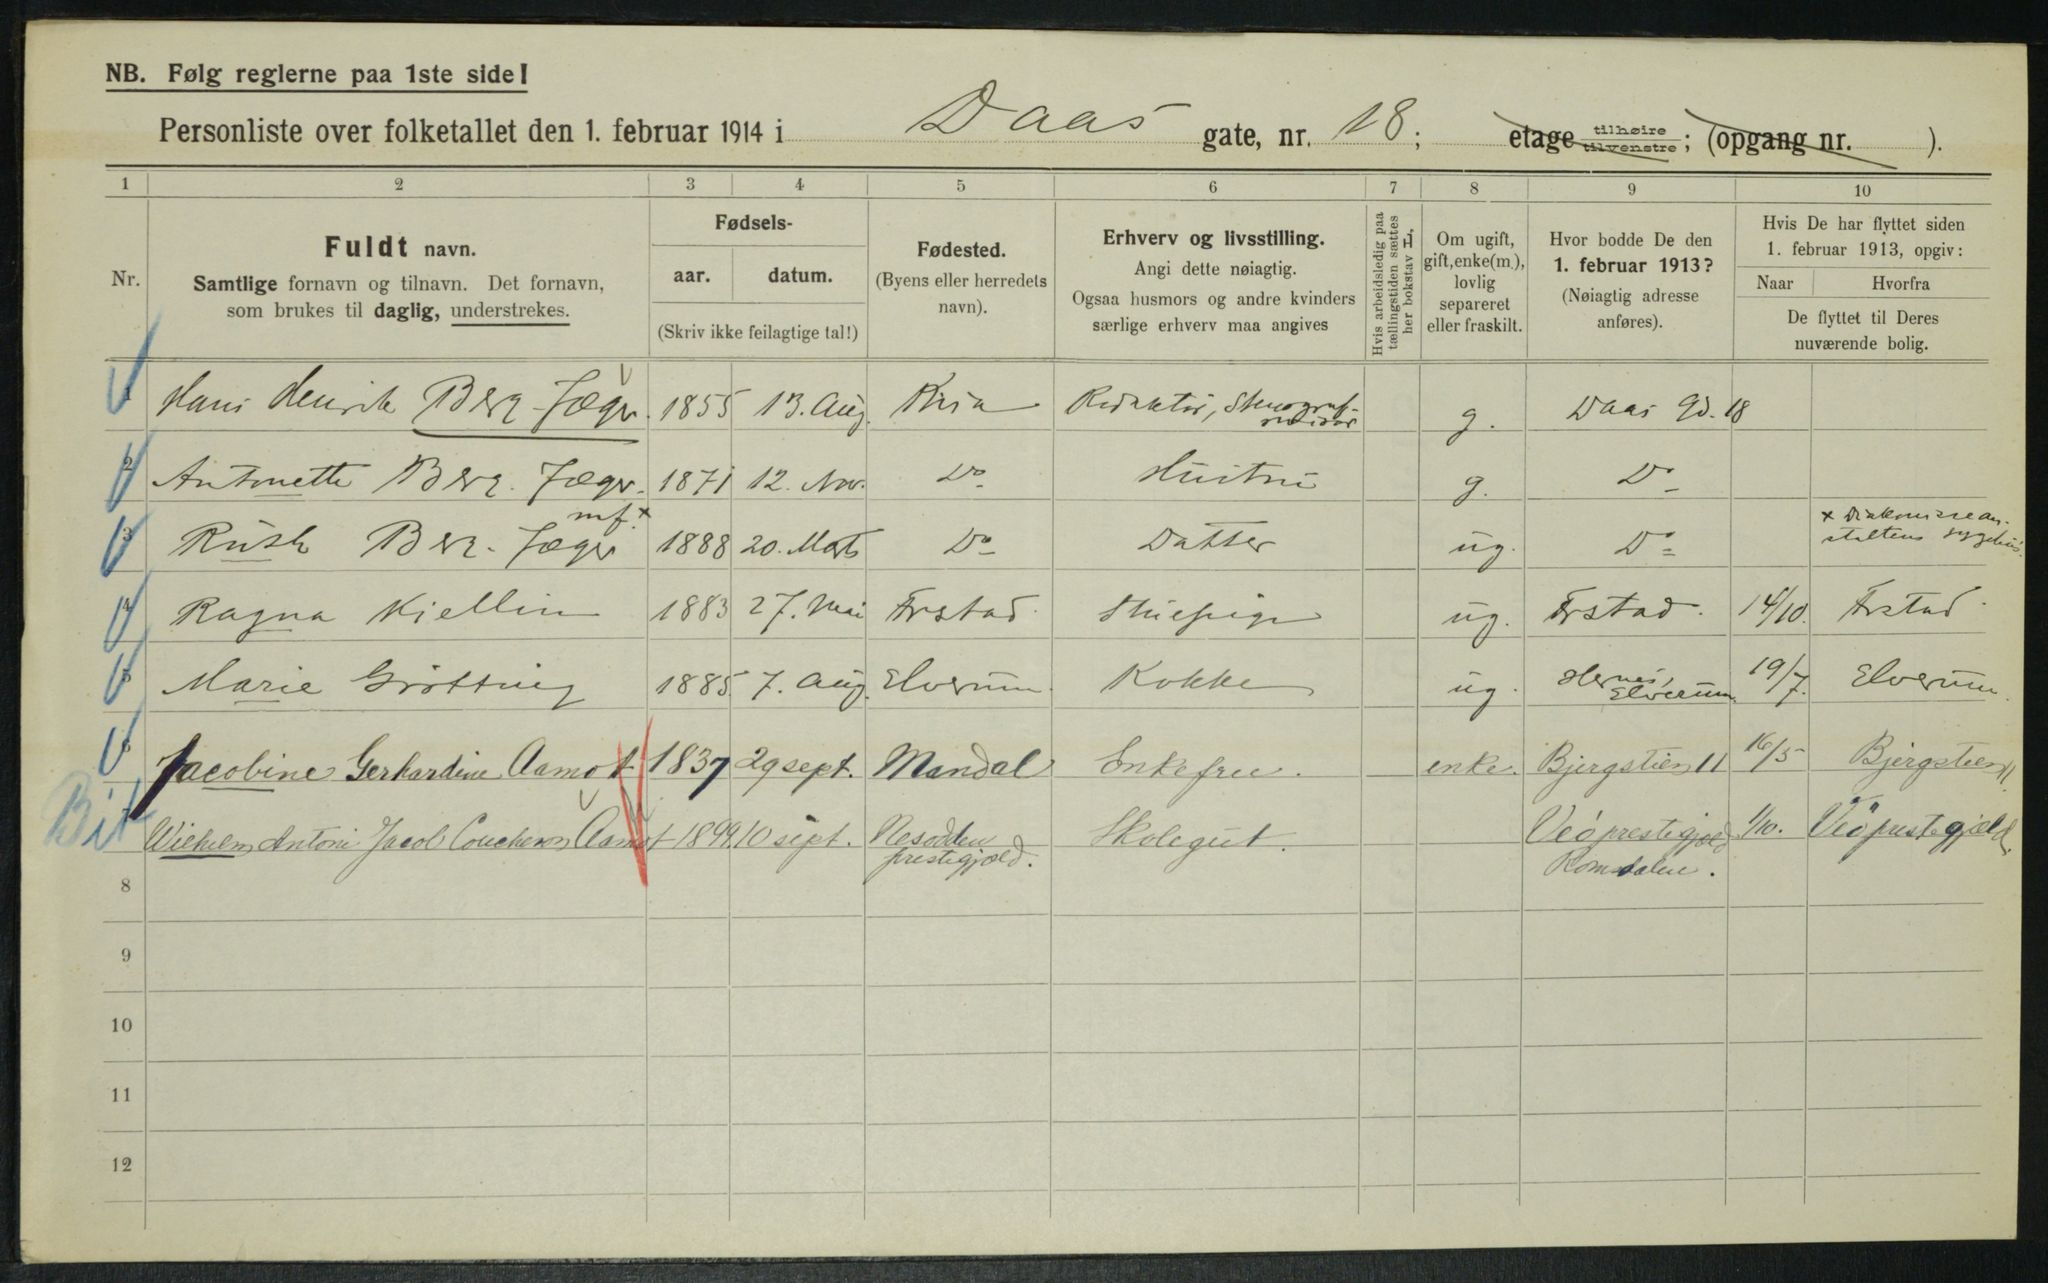 NB. Følg reglerne paa 1ste side!
Personliste over folketallet den 1. februar 1914 i Daas gate, nr. 18; etage tilhøire tilvenstre; (opgang nr. ).
1 2 3 4 5 6 7 8 9 10
Nr.
Fuldt navn.
Samtlige fornavn og tilnavn. Det fornavn, som brukes til daglig, understrekes.
Fødsels-
aar. datum.
(Skriv ikke feilagtige tal!)
Fødested.
(Byens eller herredets navn).
Erhverv og livsstilling.
Angi dette nøiagtig.
Ogsaa husmors og andre kvinders særlige erhverv maa angives
Hvis arbeidsledig paa tællingstiden sættes her bokstav L.
Om ugift, gift, enke(m.), lovlig separeret eller fraskilt.
Hvor bodde De den
1. februar 1913?
(Nøiagtig adresse anføres).
Hvis De har flyttet siden
1. februar 1913, opgiv:
Naar Hvorfra
De flyttet til Deres nuværende bolig.
1 Hans Henrik Berg-Jæger. 1855 13. Aug. Kria Redaktør, Stenograf-revisor g. Daas Gd. 18
2 Antonette Berg-Jæger. 1871 12. Nov. Do Hustru g. Do
mf. x
3 Ruth Berg-Jæger 1888 20. Marts Do Datter ug. Do x Diakonissean-staltens sygehus.
4 Ragna Kjellin 1883 27. Mai Frstad. Stuepige ug. Frstad. 14/10. Frstad
5 Marie Grøtting 1885. 7. Aug. Elverum. Kokke ug. Hernes, Elverum 19/7. Elverum.
6 Jacobine Gerhardine Aamot 1837 29 sept. Mandal Enkefrue. enke. Bjergstien 11 16/5 Bjergstien 11.
Bit
7 Wilhelm Antoni Jacob Aamot 1899. 10 sept. Nesodden prestegjæld. Skolegut. Veø prestegjæld Romsdalen. 1/10. Veø prestegjæld.
8
9
10
11
12